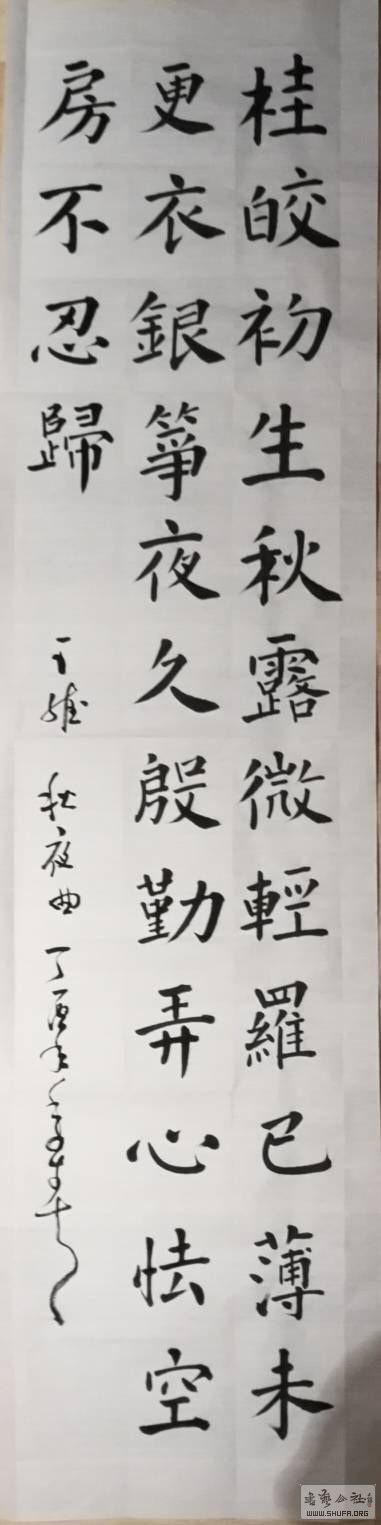 桂皎初生秋露微輕羅已薄未
更衣銀箏夜久殷勤弄心怯空
房不忍歸
王維 秋夜曲 丁酉年
書藝公社
WWW.SHUFA.ORG